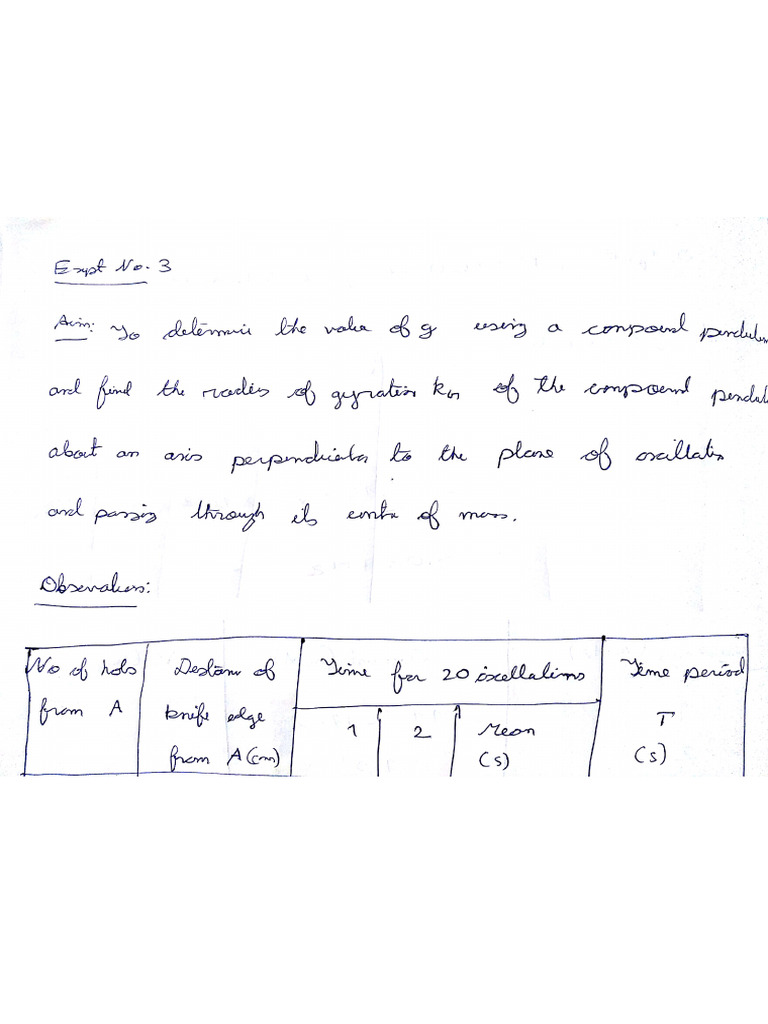 Expt No. 3
Aim: To determine the value of g using a compound pendulum
and find the radius of gyration k of the compound pendul
about an axis perpendicular to the plane of oscillation
and passing through its centre of mass.
Observations:
No of hols Distance of Time for 20 oscillations Time period
from A knife edge 1 2 Mean T
from A (cm) (s) (s)